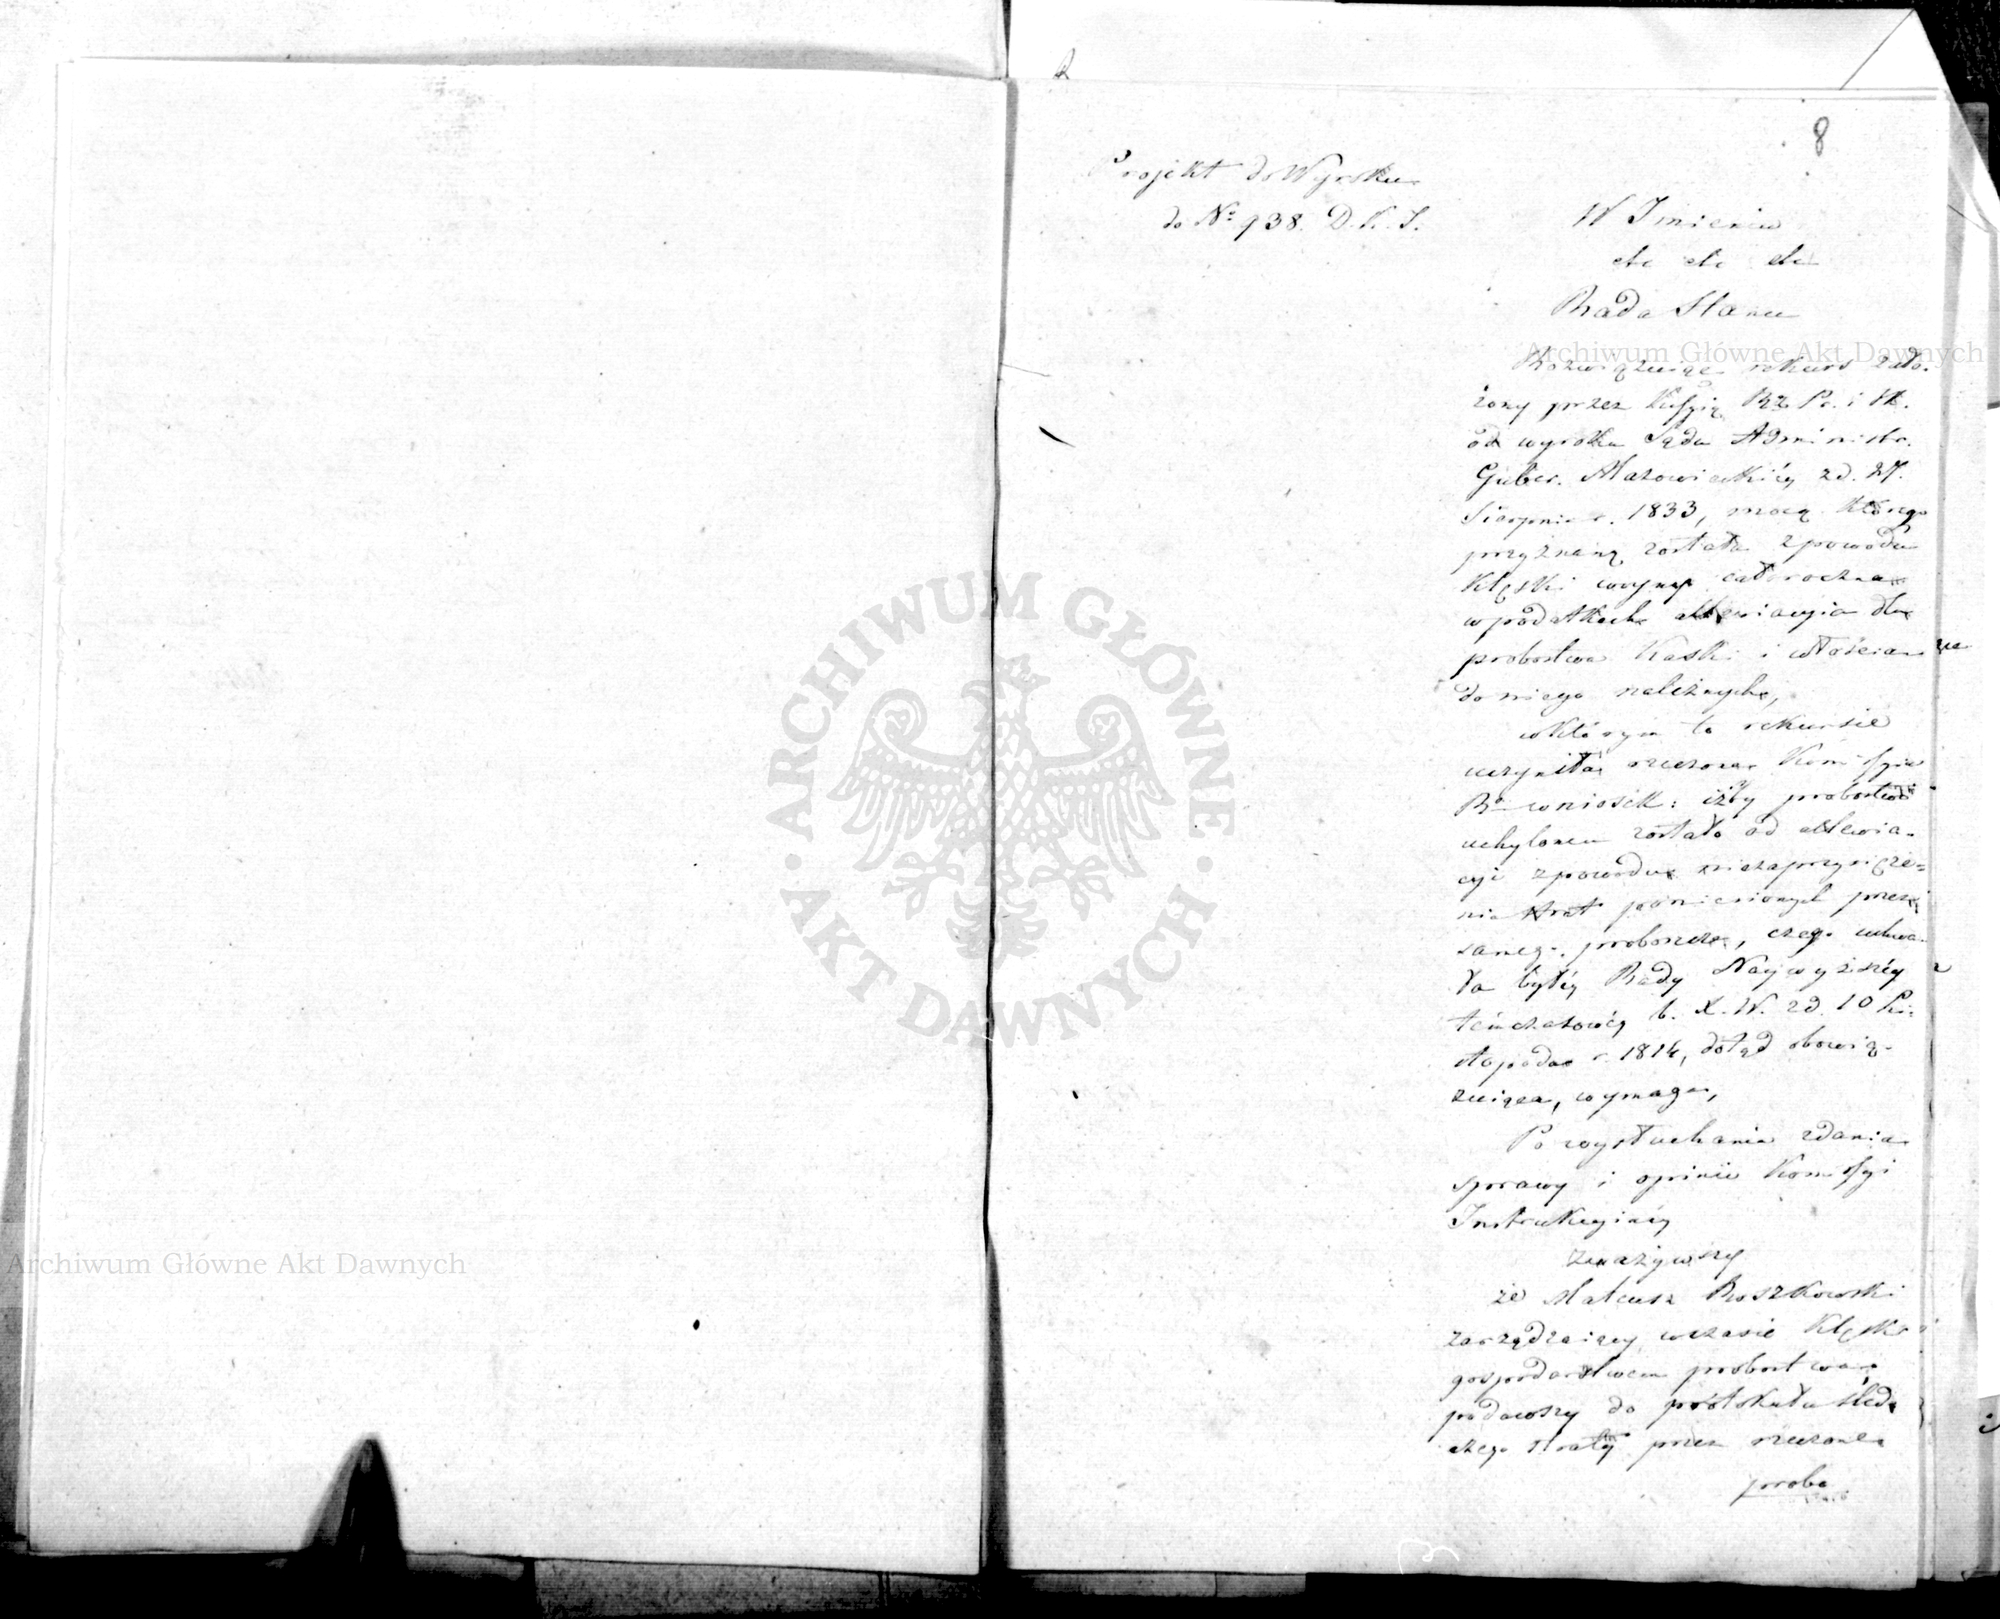 8
Projekt do Wyroku
do No 938. D.K.I.
W Imieniu
etc etc etc
Rada Stanu
Rozwiązuiąc rekurs zało-
żony przez Kuszyą Rz. Pr. i Sk.
od wyroku Sądu Administr.
Guber. Mazowieckiéy z d. 27.
Sierpnia r. 1833, mocą którego
przyznaną została z powodu
klęski woyny całoroczna
w podatkach allewiacyia dla
probostwa Kaski i włościan
do niego należnych,
w którym to rekursie
uczyniła rzeczona Kommissyia
Ra wniosek: iżby probostwo
uchylonem zostało od allewia-
cyi z powodu niezaprzysięże-
nia strat poniesionych przez
samego proboszcza, czego uchwa-
ła byłéy Rady Naywyższéy
tymczasowéy b. X. W. z d. 10 Li-
stopada r. 1814, dotąd obowią-
zuiąca, wymaga,
Po wysłuchaniu zdania
sprawy i opinii Kommissyi
Instrukcyinéy
zważywszy
że Mateusz Roszkowski
zarządzaiący w czasie klęski
gospodarstwem probostwa,
podawszy do protokułu śled-
czego straty przez rzeczone
probo
Archiwum Główne Akt Dawnych
Archiwum Główne Akt Dawnych
ARCHIWUM GŁÓWNE · AKT DAWNYCH ·